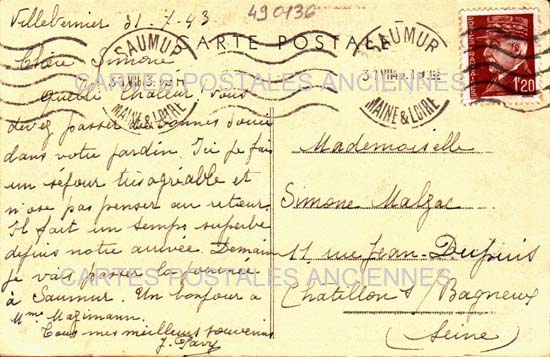 Villebernier 31-7-43
490136
CARTE POSTALE
SAUMUR
MAINE & LOIRE
SAUMUR
MAINE & LOIRE
1'20
CARTES POSTALES ANCIENNES
Chère Simone
Quelle chaleur, vous
devez passer de bonnes soirées
dans votre jardin. Ici je fais
un séjour très agréable et
n'ose pas penser au retour.
Il fait un temps superbe
depuis notre arrivée. Demain
je vais passer la journée
à Saumur. Un bonjour à
Mme Mazimann.
Tous mes meilleurs souvenirs
Mademoiselle
Simone Malzac
11 rue Jean-Dupuis
CARTES POSTALES ANCIENNES
Châtillon s/ Bagneux
(Seine)